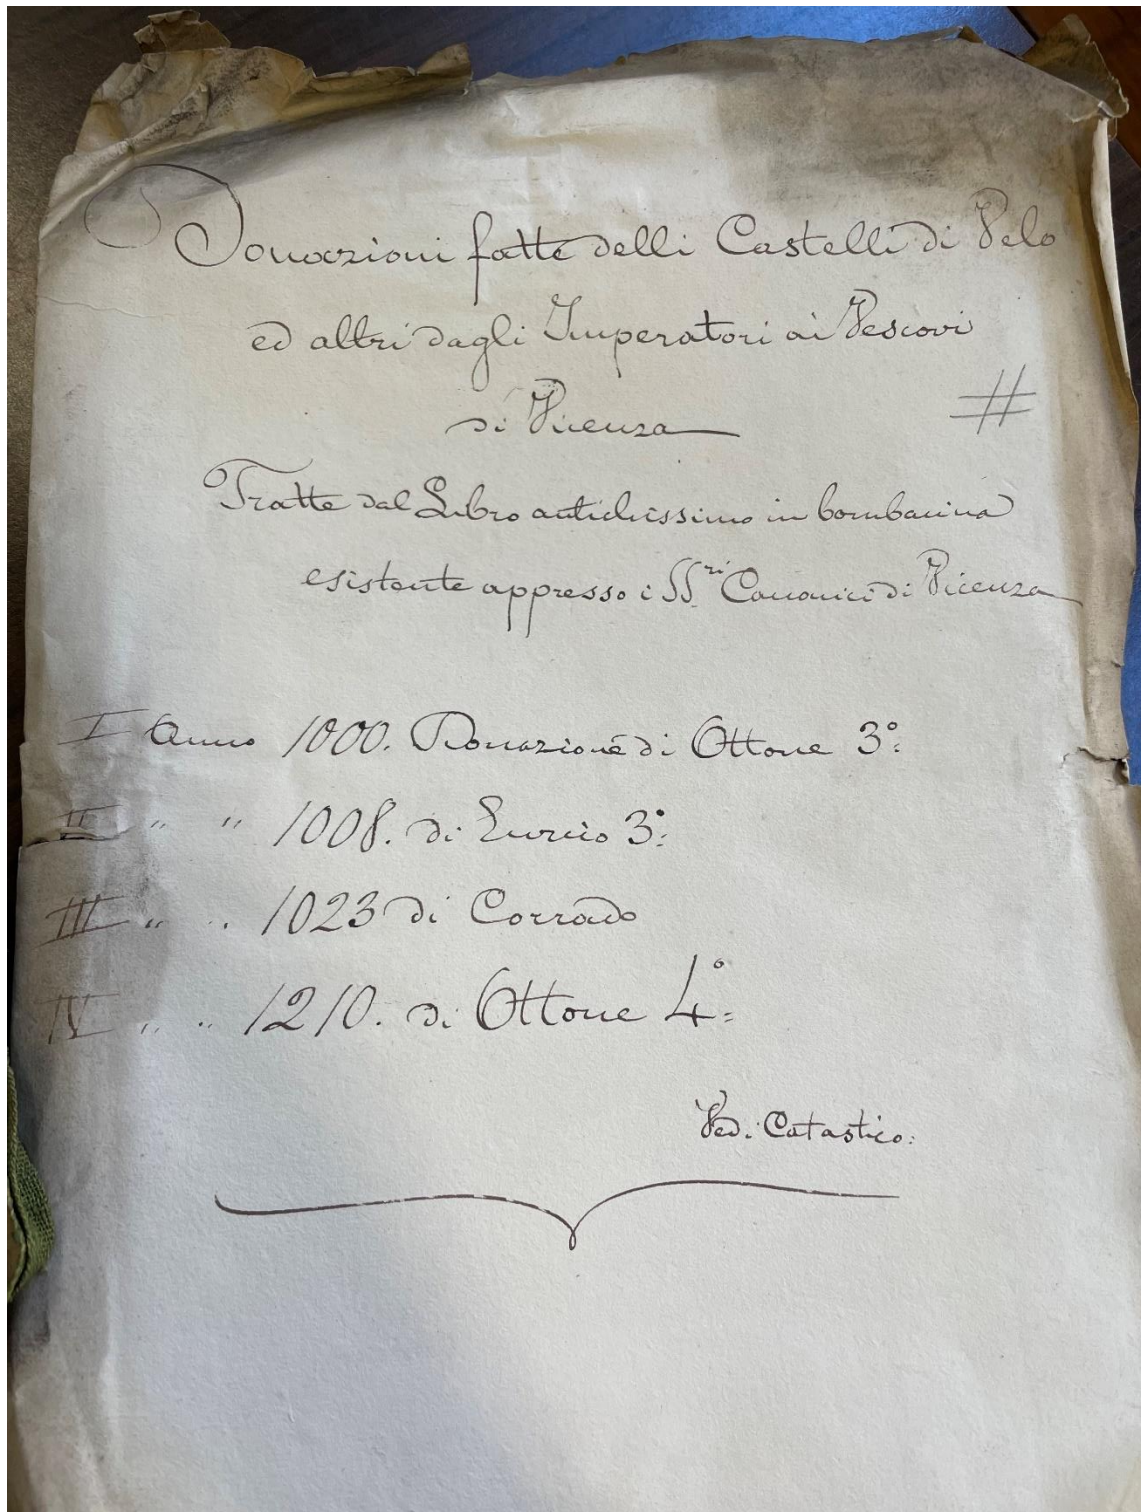 Donazioni fatte delli Castelli di Velo
ed altri dagli Imperatori ai Vescovi
di Vicenza
#
Tratte dal Libro antichissimo in bombacina
esistente appresso i SS.ri Canonici di Vicenza
I Anno 1000. Donazione di Ottone 3°:
II " " 1008. di Enrico 3°:
III " " 1023 di Corrado
IV " " 1210. di Ottone 4°=
Ved. Catastico: